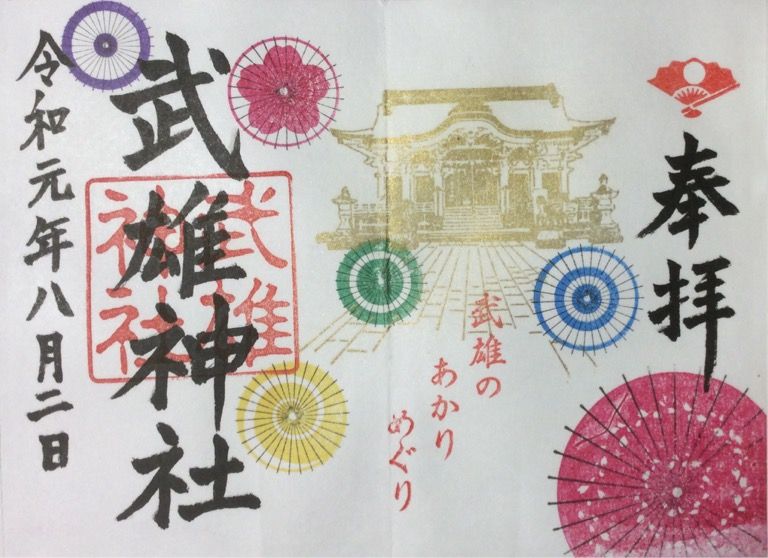 奉拝
武雄の
あかり
めぐり
武雄神社
武雄
神社
令和元年八月二日